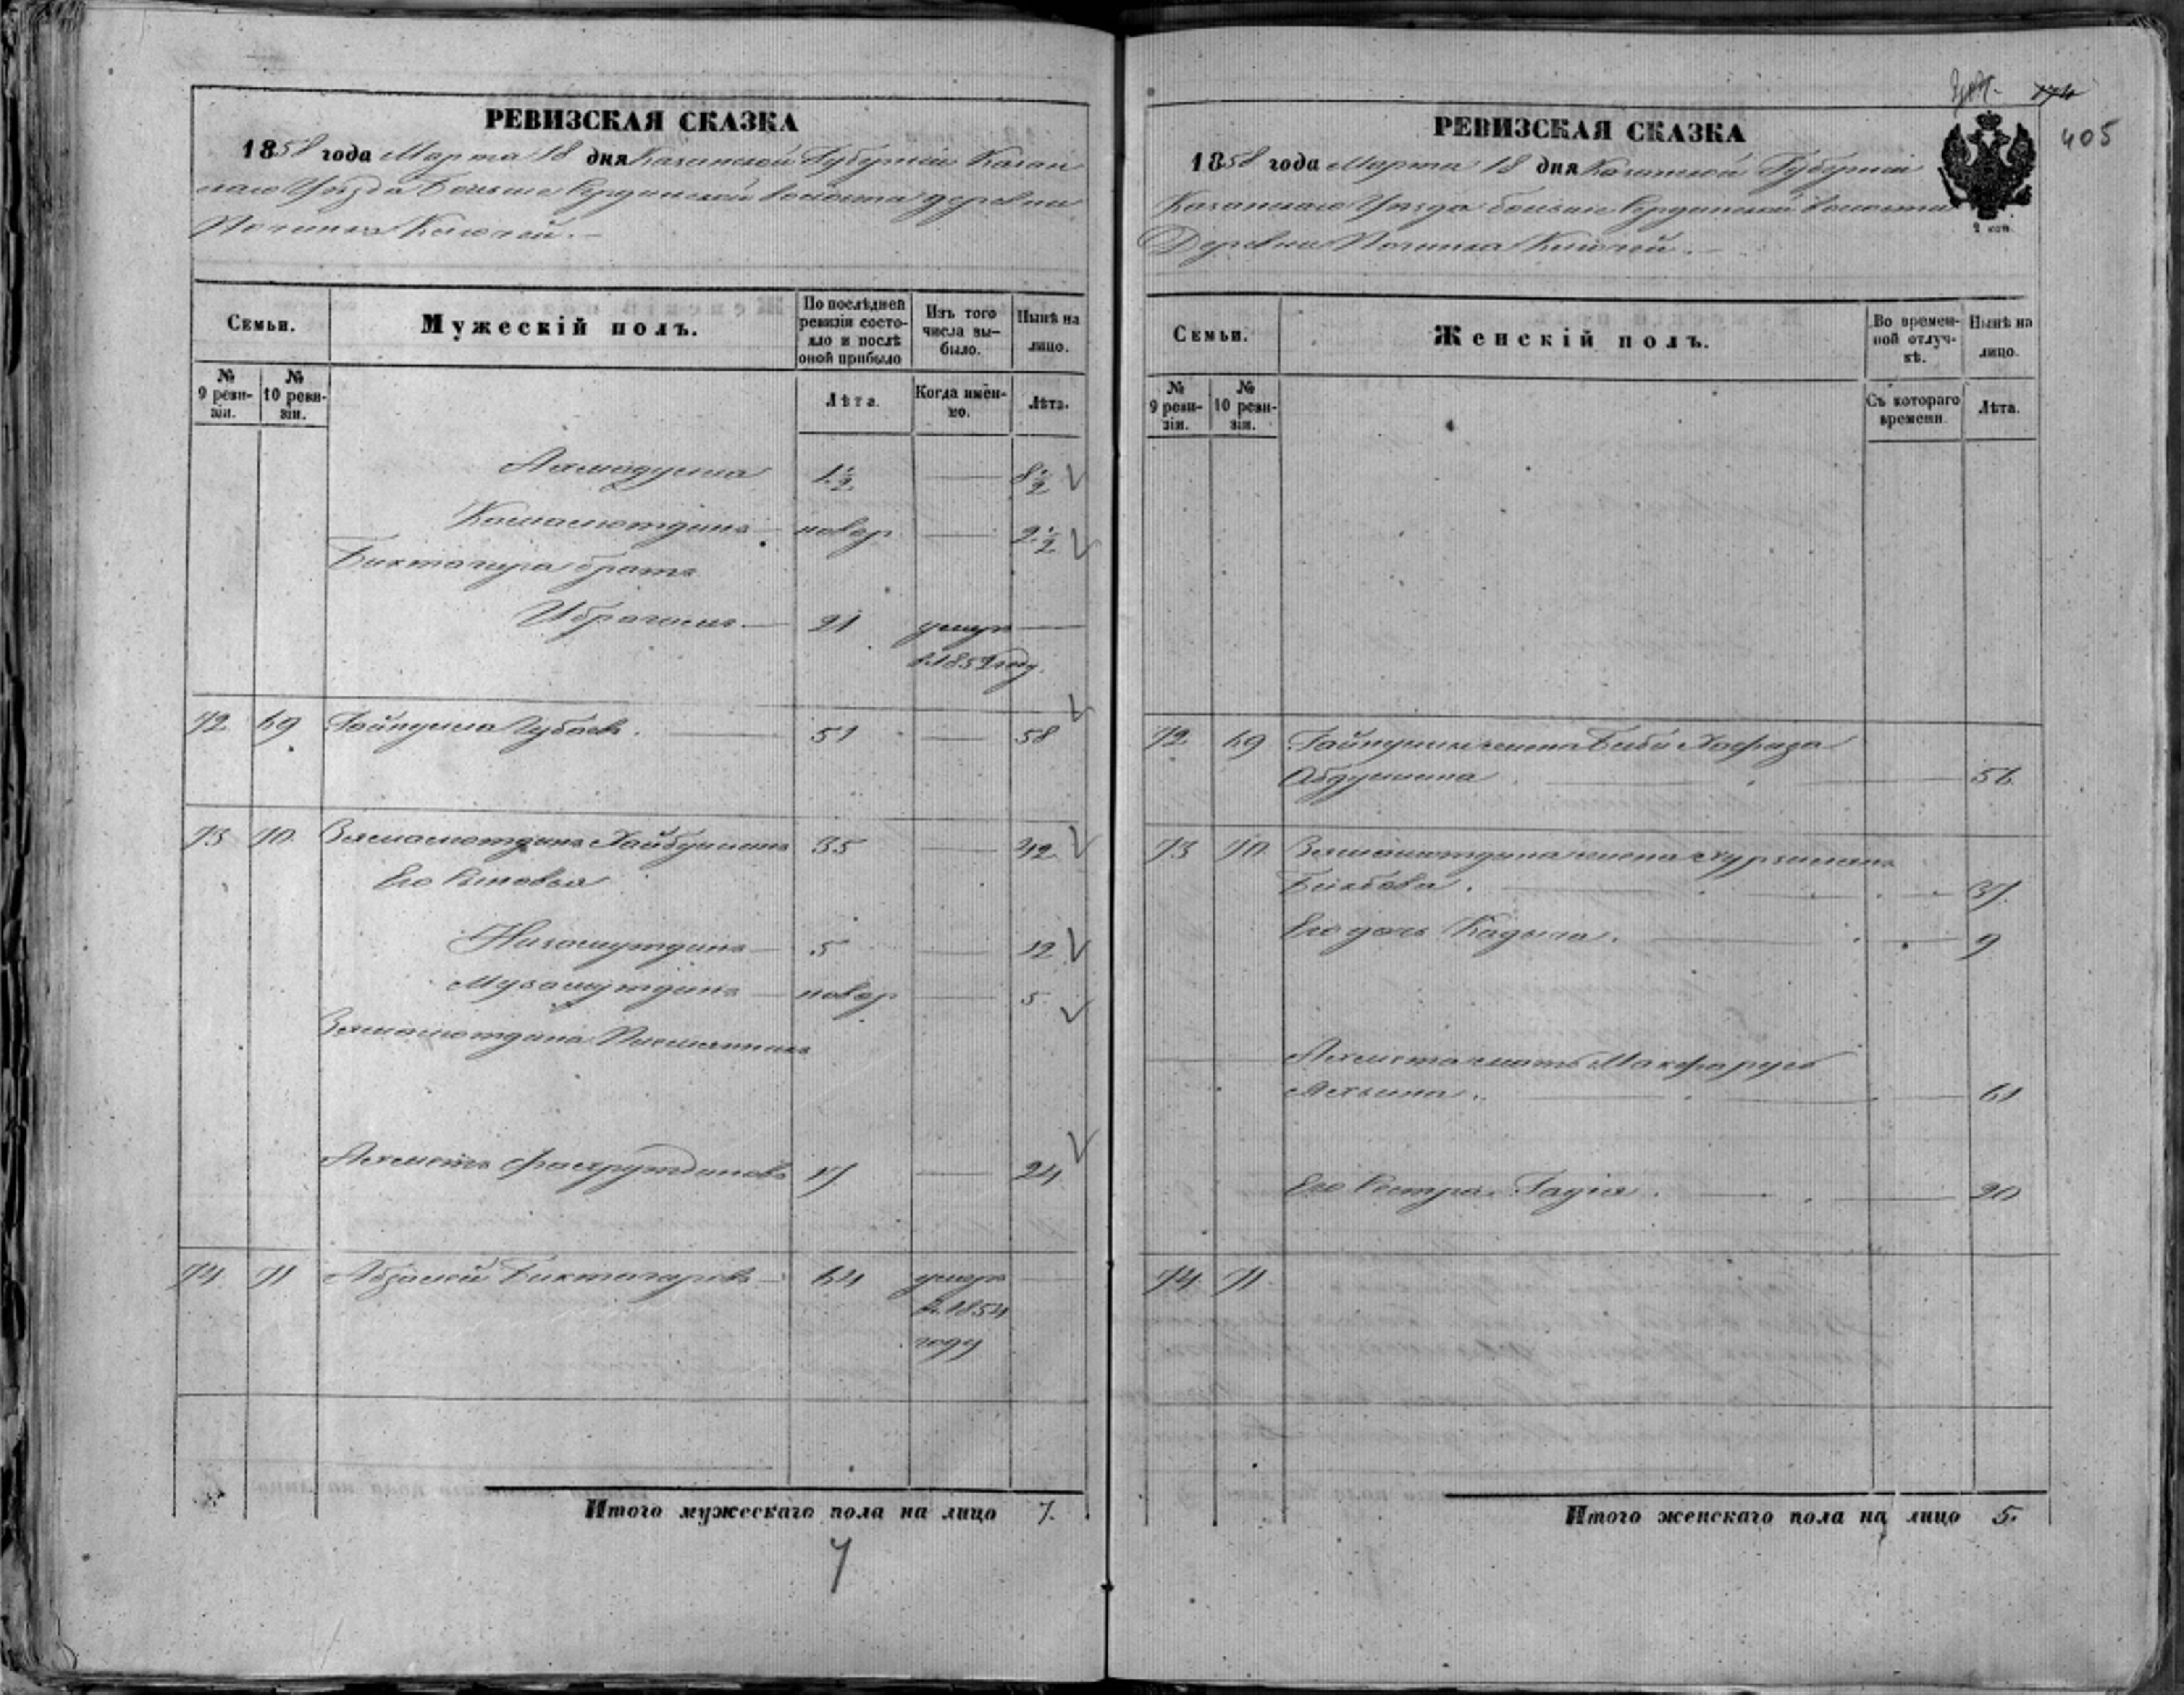 РЕВИЗСКАЯ СКАЗКА
1858 года Марта 18 дня Казанской Губернiи Казан
скаго Уѣзда Больше Сердинской волости деревни
Починка Ключей.
Семьи.
Мужескiй полъ.
По послѣдней ревизiи состояло и послѣ оной прибыло
Изъ того числа выбыло.
Нынѣ на лицо.
№ 9 ревизiи.
№ 10 ревизiи.
Лѣта.
Когда именно.
Лѣта.
Ахмадулла 1 1/2 — 8 1/2
Камалютдинъ — новор — 2 1/2
Биктагира братъ
Ибрагимъ. — 21 умеръ —
в 1852 году.
72 69 Гайнулла Губаевъ. — 51 — 58
73 70 Зямалютдинъ Хайбуллинъ 35 — 42
Его Сыновья
Низамутдинъ — 5 — 12
Музамутдинъ — новор — 5
Зямалютдина Племянникъ
Ахметъ Фахрутдиновъ 17 — 24
74 71 Абзалей Биктагировъ — 64 умеръ —
в 1854
году
Итого мужескаго пола на лицо 7.
7
174
405
РЕВИЗСКАЯ СКАЗКА
1858 года Марта 18 дня Казанской Губернiи
Казанскаго Уѣзда больше Сердинской волости
Деревни Починка Ключей. —
2 коп.
Семьи.
Женскiй полъ.
Во временной отлучкѣ.
Нынѣ на лицо.
№ 9 ревизiи.
№ 10 ревизiи.
Съ котораго времени.
Лѣта.
72 69 Гайнуллы жена Биби Хафиза
Абдуллина. — 56
73 70 Зямалютдина жена
37
Его дочь Кадыча. — 9
Ахмета мать
61
Его Сестра — 20
74 71
Итого женскаго пола на лицо 5.